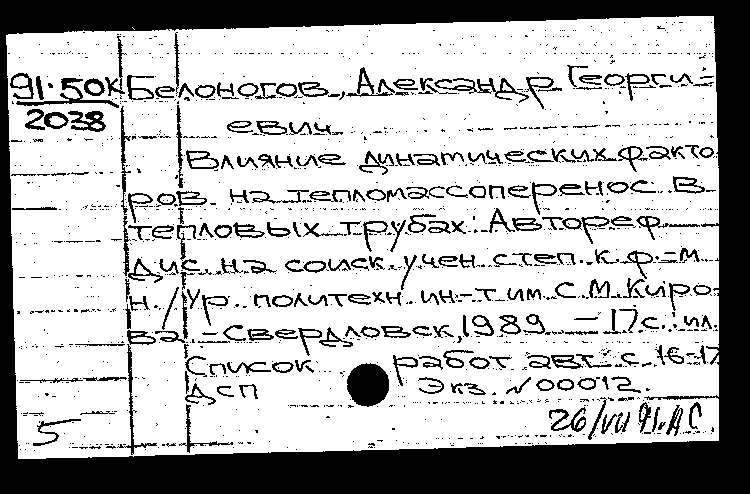 91.50К Белоногов, Александр Георги=
2038
евич
Влияние динамических факто
ров на тепломассоперенос в
тепловых трубах: Автореф
дис. на соиск. учен. степ. к. ф.-м
н. / Ур. политехн. ин-т им. С. М. Киро-
ва. - Свердловск, 1989 - 17 с.: ил.
Список работ авт.: с. 16-17
ДСП Экз. N 00012.
5 26/VII 91. АС.